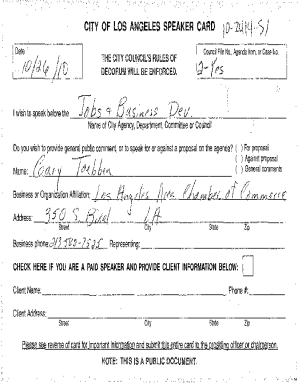 CITY OF LOS ANGELES SPEAKER CARD 10-2414-S1
Date
10/26/10
THE CITY COUNCIL'S RULES OF
DECORUM WILL BE ENFORCED.
Council File No., Agenda Item, or Case No.
2-Yes
I wish to speak before the Jobs & Business Dev.
Name of City Agency, Department, Committee or Council
Do you wish to provide general public comment, or to speak for or against a proposal on the agenda? ( ) For proposal
( ) Against proposal
Name: Gary Toebben ( ) General comments
Business or Organization Affiliation: Los Angeles Area Chamber of Commerce
Address: 350 S. Bixel LA
Street City State Zip
Business phone: 213 580-7525 Representing:
CHECK HERE IF YOU ARE A PAID SPEAKER AND PROVIDE CLIENT INFORMATION BELOW:
Client Name: Phone #:
Client Address:
Street City State Zip
Please see reverse of card for important information and submit this entire card to the presiding officer or chairperson.
NOTE: THIS IS A PUBLIC DOCUMENT.